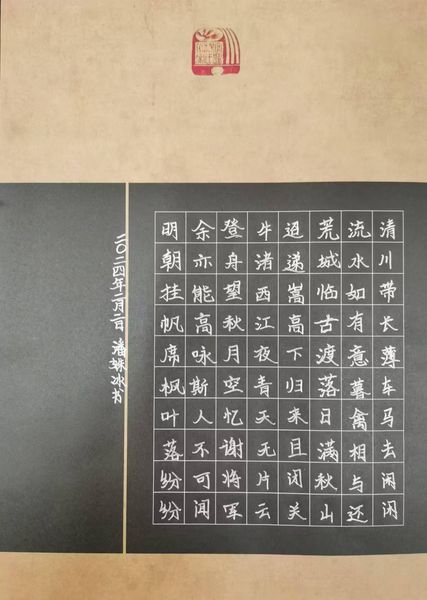 清川带长薄车马去闲闲
流水如有意暮禽相与还
荒城临古渡落日满秋山
迢递嵩高下归来且闭关
牛渚西江夜青天无片云
登舟望秋月空忆谢将军
余亦能高咏斯人不可闻
明朝挂帆席枫叶落纷纷
二〇二四年二月二日 潘姝冰书